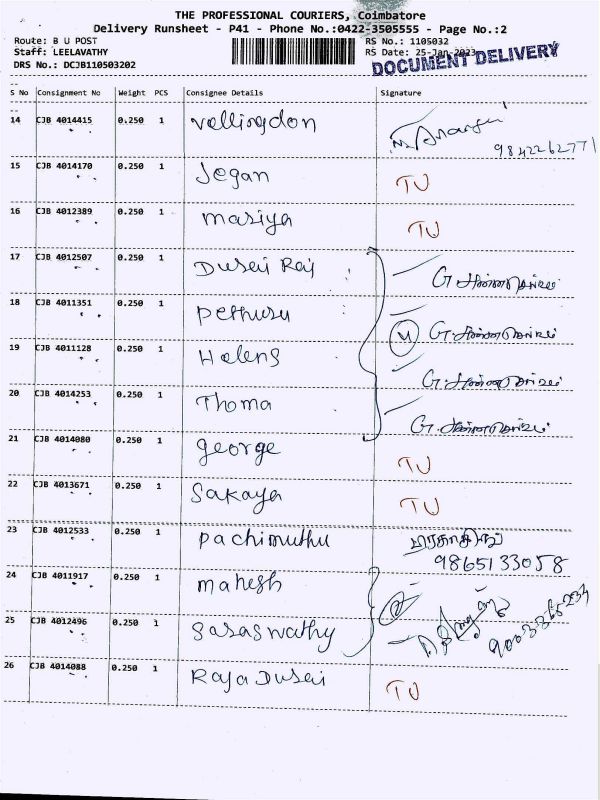 THE PROFESSIONAL COURIERS, Coimbatore
Delivery Runsheet - P41 - Phone No.:0422-3505555 - Page No.:2
Route: B U POST RS No.: 1105032
Staff: LEELAVATHY RS Date: 25-Jan-2023
DRS No.: DCJB110503202 DOCUMENT DELIVERY
S No Consignment No Weight PCS Consignee Details Signature
14 CJB 4014415 0.250 1 Vellingdon
9842262771
15 CJB 4014170 0.250 1 Jegan TU
16 CJB 4012389 0.250 1 masiya TU
17 CJB 4012507 0.250 1 Dusai Raj
18 CJB 4011351 0.250 1 pethusu 4
19 CJB 4011128 0.250 1 Helens
20 CJB 4014253 0.250 1 Thoma
21 CJB 4014080 0.250 1 george TU
22 CJB 4013671 0.250 1 Sakaya TU
23 CJB 4012533 0.250 1 pachimuthu
9865133058
24 CJB 4011917 0.250 1 mahesh
25 CJB 4012496 0.250 1 Sasaswathy
26 CJB 4014088 0.250 1 Raja Dusai TU